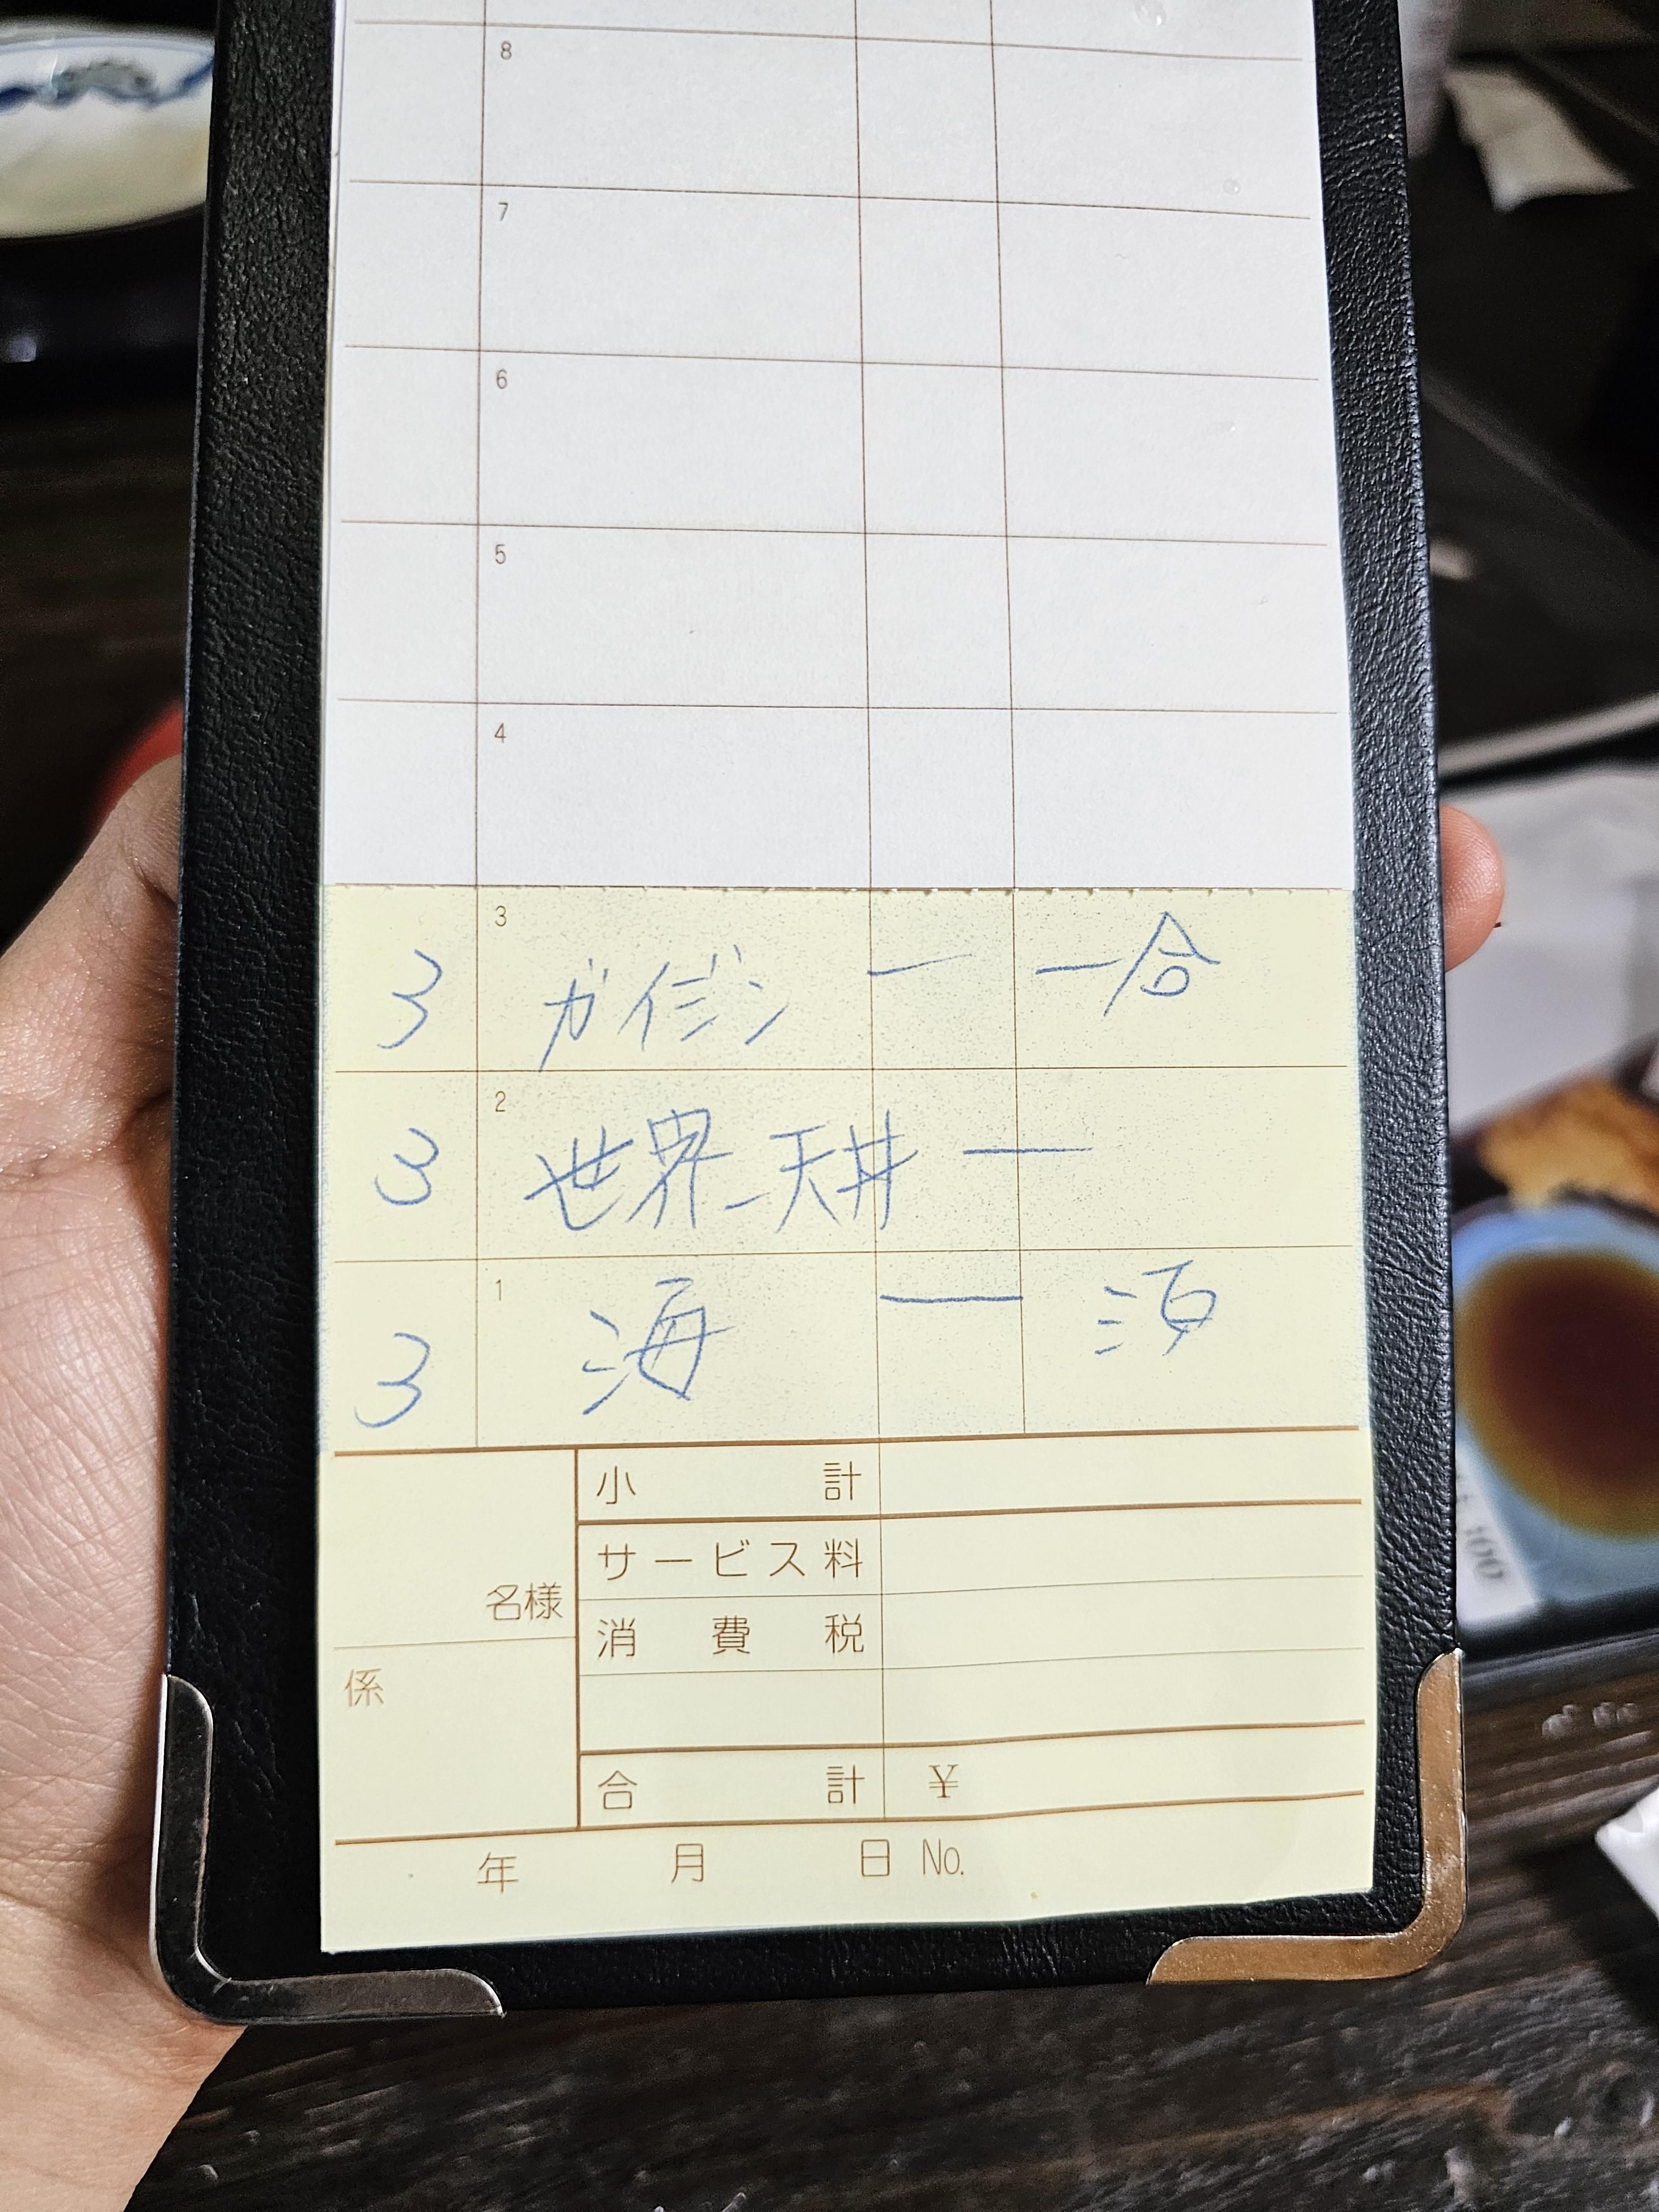 8
7
6
5
4
3 3 ガイジン 一 一合
3 2 世界一天丼 一
3 1 海 一
小計
サービス料
名様
消費税
係
合計 ¥
年 月 日 No.